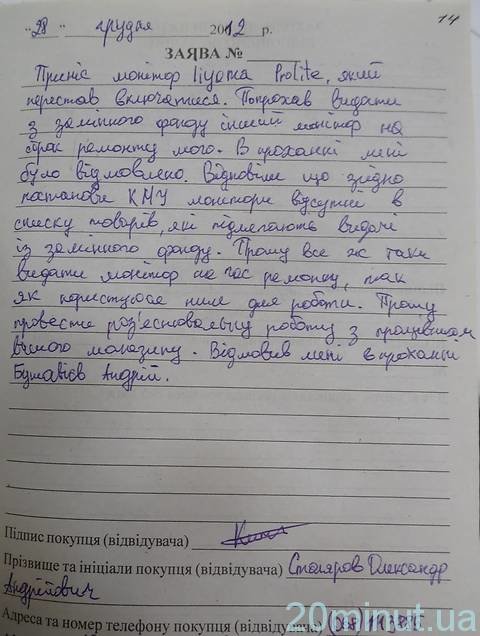 14
"28" грудня 2012 р.
ЗАЯВА №
Приніс монітор Iiyama ProLite, який
перестав включатися. Попрохав видати
з замінного фонду інший монітор на
строк ремонту мого. В проханні мені
було відмовлено. Відповіли що згідно
постанови КМУ монітори відсутні в
списку товарів, які підлягають видачі
із замінного фонду. Прошу все ж таки
видати монітор на час ремонту, так
як користуюся ним для роботи. Прошу
провести роз'яснювальну роботу з працівником
вашого магазину. Відмовив мені в проханні
Андрій.
Підпис покупця (відвідувача)
Прізвище та ініціали покупця (відвідувача) Столяров Олександр
Андрійович
Адреса та номер телефону покупця (відвідувача)
20minut.ua